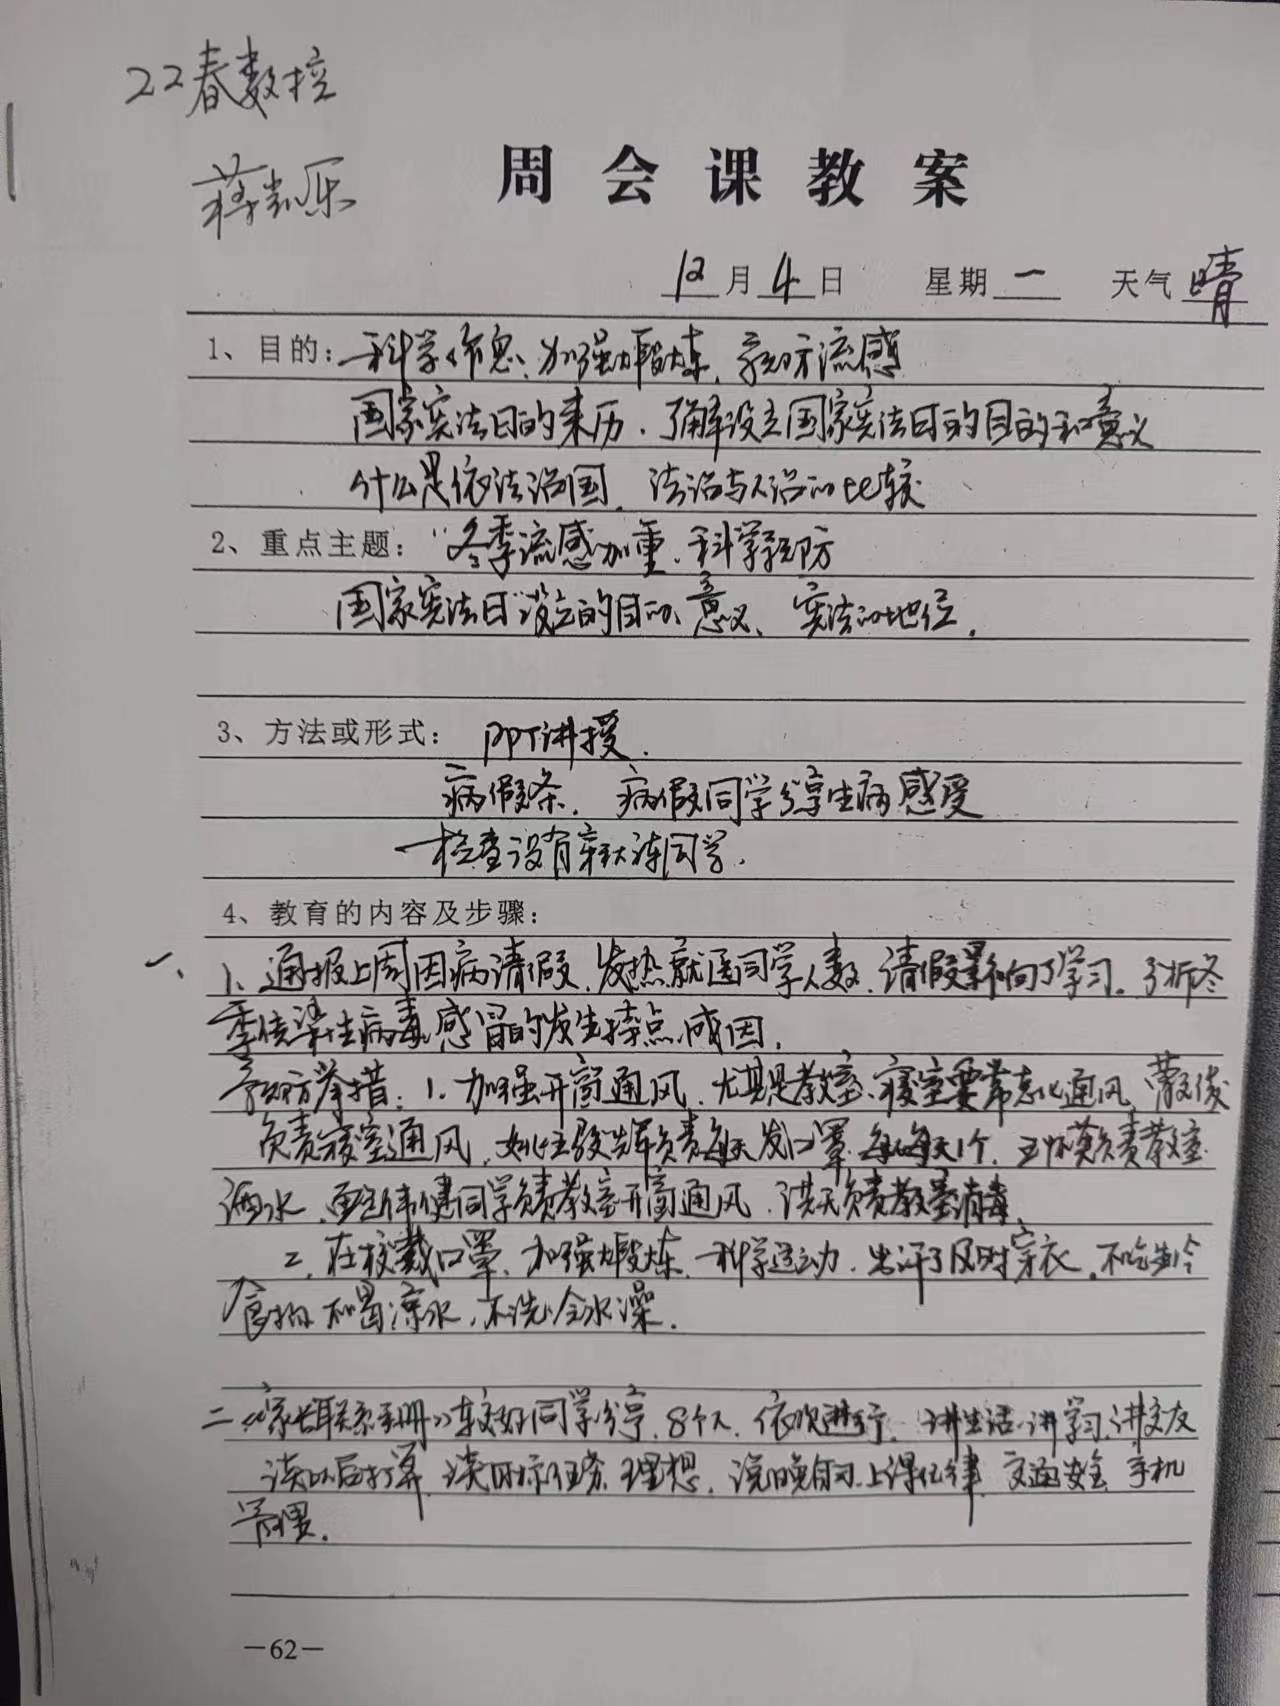 22春数控
蒋
周会课教案
12月4日 星期一 天气晴
1、目的：科学作息、加强锻炼、预防流感
国家宪法日的来历、了解设立国家宪法日的目的和意义
什么是依法治国、法治与人治的比较
2、重点主题：“冬季流感加重、科学预防
国家宪法日”设立的目的、意义、宪法的地位。
3、方法或形式：PPT讲授、
病假条、病假同学分享生病感受
检查没有穿校同学、
4、教育的内容及步骤：
一、1、通报上周因病请假、发热就医同学人数、请假影响了学习。分析冬
季传染性病毒感冒的发生特点、成因。
预防举措：1、加强开窗通风、尤其是教室、寝室要常态化通风、
负责寝室通风、负责每天发口罩、每人每天1个、负责教室
洒水、同学负责教室开窗通风、负责教室消毒
2、在校戴口罩、加强锻炼、科学运动、出汗了及时穿衣、不吃生冷
食物、不喝凉水、不洗冷水澡。
二《家长联系手册》较好同学分享、8个人、依次进行、讲生活、讲学习、讲交友
谈以后打算、谈目标任务、理想、说晚自习、上课纪律、交通安全、手机
管理。
—62—